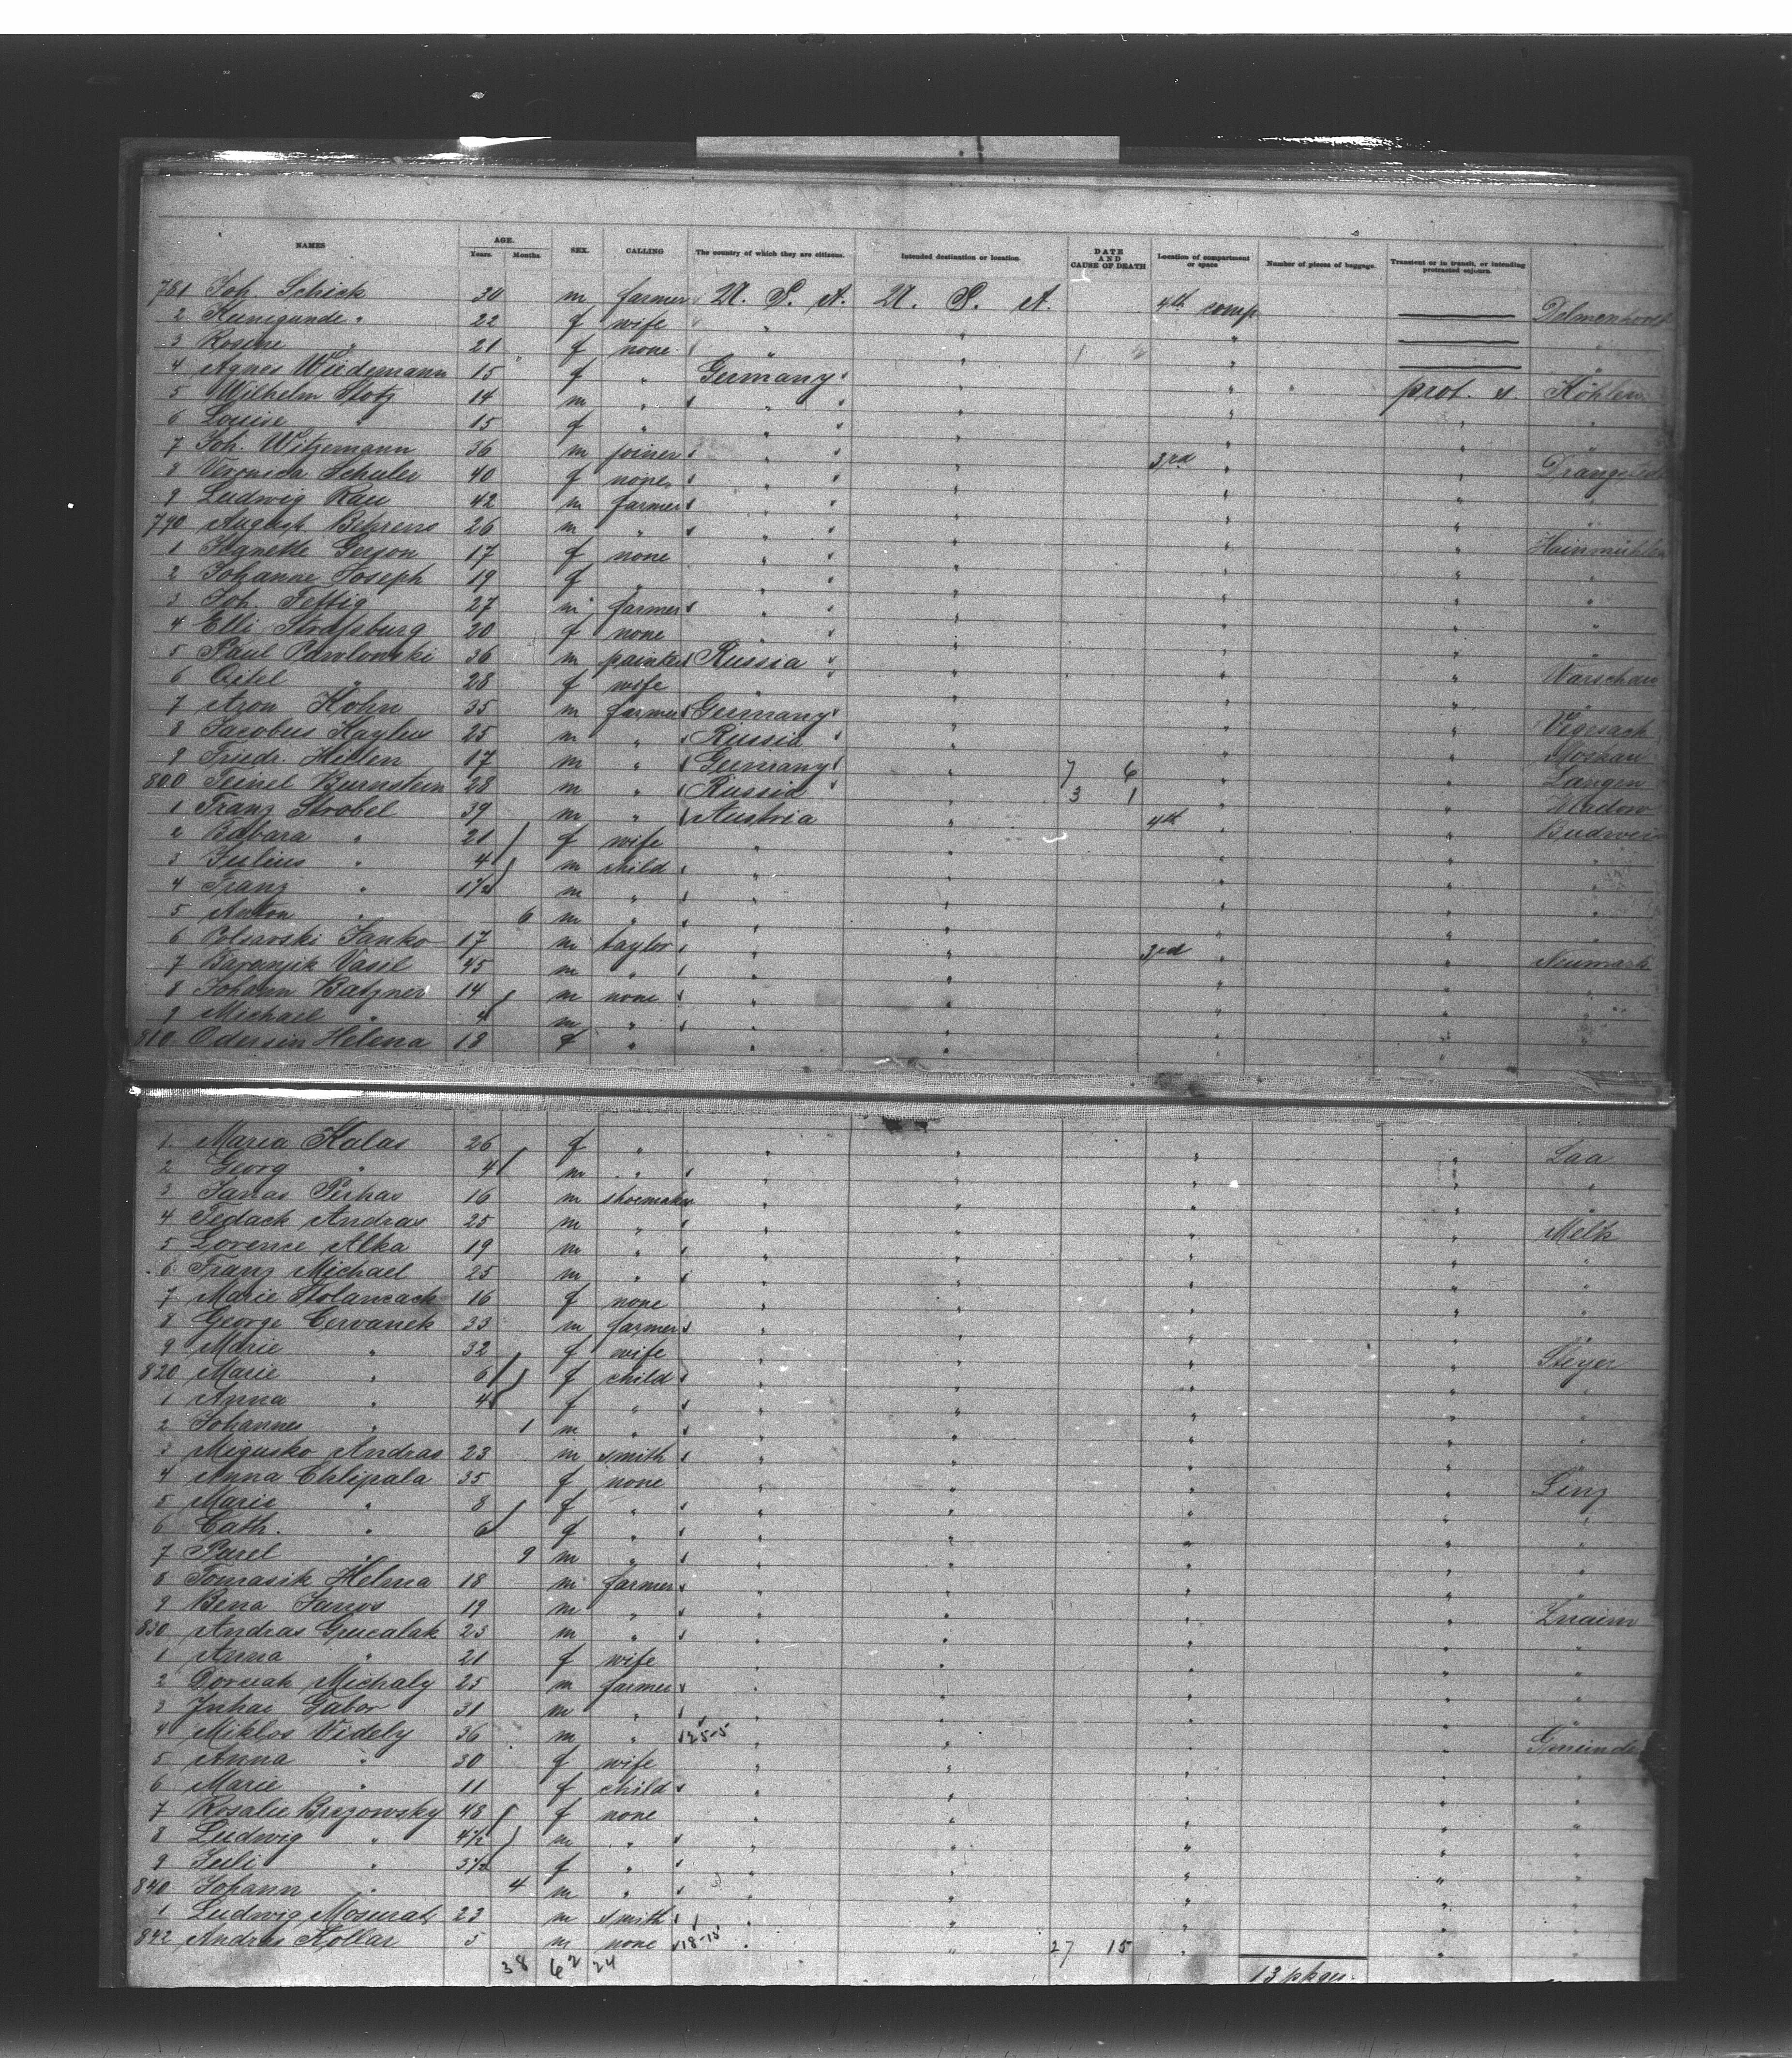 NAMES AGE. Years. Months. SEX. CALLING The country of which they are citizens. Intended destination or location. DATE AND CAUSE OF DEATH Location of compartment or space Number of pieces of baggage. Transient or in transit, or intending protracted sojourn.
781 Joh. Schick 30 m farmer U. S. A. U. S. A. 4th comp Delmenhorst
2 Kunegunde " 22 f wife " " " "
3 Rosine " 21 f none " " "
4 Agnes Wiedemann 15 f " Germany " " prot. s. Köhlen
5 Wilhelm Stotz 14 m " " " " " "
6 Louise " 15 f " " " " "
7 Joh. Witzemann 36 m joiner " " 3rd " " Drangstedt
8 Veronica Schuler 40 f none " " " " "
9 Ludwig Rau 42 m farmer " " " " "
790 August Behrens 26 m " " " " " Hainmühlen
1 Jeanette Gerson 17 f none " " " " "
2 Johanne Joseph 19 f " " " " " "
3 Joh. Fettig 27 m farmer " " " " "
4 Elli Strassburg 20 f none " " " " "
5 Paul Pawlowski 36 m painter Russia " " " Warschau
6 " 28 f wife " " " " "
7 Aron Kohn 35 m farmer Germany " " " Vegesack
8 Jacobus 25 m " Russia " " " Moskau
9 Friedr. Hillen 17 m " Germany " 7 6 " " Langen
800 Feinel Burnstein 28 m " Russia " 3 1 " "
1 Franz Strobel 39 m " Austria " 4th " " Budweis
2 Babara " 21 f wife " " " " "
3 Julius " 4 m child " " " " "
4 Franz " 1½ m " " " " " "
5 Anton " 6 m " " " " " "
6 Janko 17 m taylor " " 3rd " " Neumark
7 Vasil 45 m " " " " " "
8 Johann Batzner 14 m none " " " " "
9 Michael " 4 m " " " " " "
810 Helena 18 f " " " " "
1 Maria Kalas 26 f " " " " " Laa
2 Georg " 4 m " " " " " "
3 Janas Perhas 16 m shoemaker " " " " "
4 Andras 25 m " " " " " Melk
5 Lorence Alka 19 m " " " " " "
6 Franz Michael 25 m " " " " " "
7 Marie 16 f none " " " "
8 George Cervanek 33 m farmer " " " " Steyer
9 Marie " 32 f wife " " " " "
820 Marie " 6 f child " " " " "
1 Anna " 4 f " " " " " "
2 Johannes " 1 m " " " " " "
3 Migusko Andras 23 m smith " " " " Linz
4 Anna Chlipala 35 f none " " " " "
5 Marie " 8 f " " " " " "
6 Cath. " 6 f " " " " " "
7 Parel " 9 m " " " " " "
8 Tomasik Helma 18 m farmer " " " " Znaim
9 Bena Janos 19 m " " " " " "
830 Andras 23 m " " " " " "
1 Anna " 21 f wife " " " " "
2 Michaly 25 m farmer " " " "
3 Gabor 31 m " " " " " Gmeinde
4 Miklos Videly 36 m " " " " "
5 Anna " 30 f wife " " " " "
6 Marie " 11 f child " " " " "
7 Rosalie Brezowsky 48 f none " " " " "
8 Ludwig " 4½ m " " " " "
9 Juli " 3½ f " " " " "
840 Johann " 4 m " " " " "
1 Ludwig 23 m smith " " " "
842 Andras Kollar 5 m none 18-15 " " 27 15 " "
38 62 24 13 pkges.